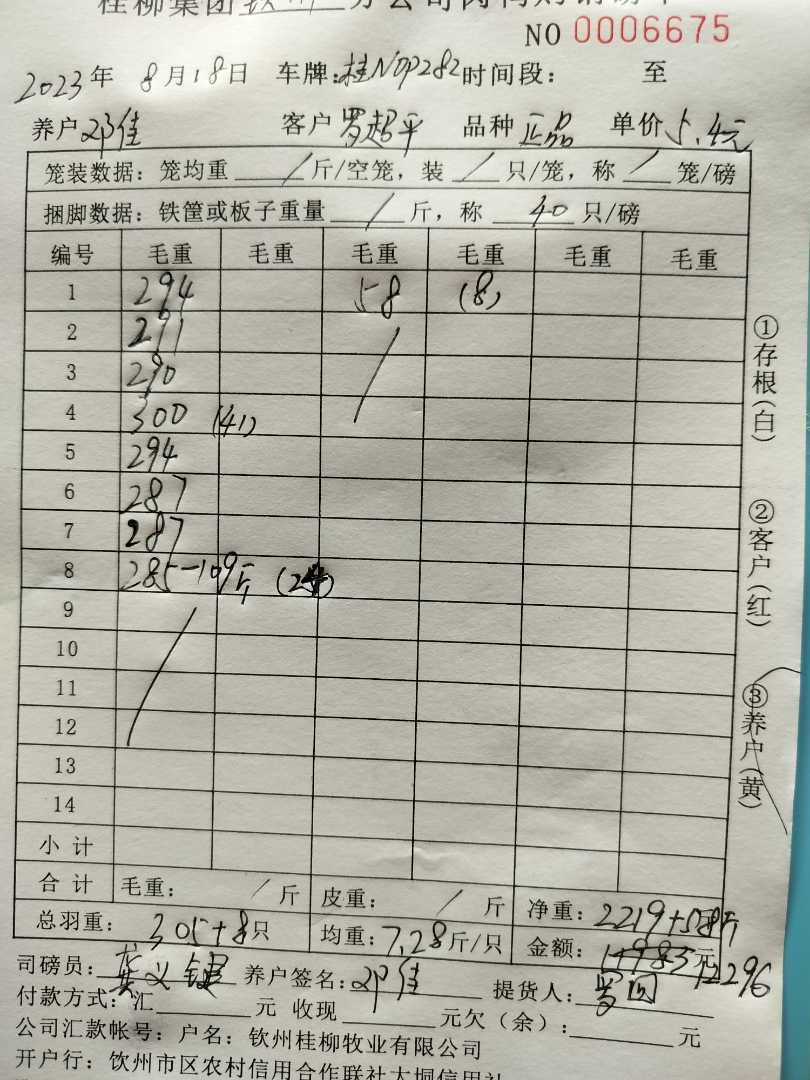 桂柳集团钦州分公司肉鸭购销磅单
NO 0006675
2023年 8月18日 车牌:桂NDP282 时间段: 至
养户 邓佳 客户 罗超平 品种 正品 单价 5.4元
笼装数据: 笼均重 / 斤/空笼, 装 / 只/笼, 称 / 笼/磅
捆脚数据: 铁筐或板子重量 / 斤, 称 40 只/磅
编号 毛重 毛重 毛重 毛重 毛重 毛重
1 294 58 (8)
2 291
3 290
4 300 (41)
5 294
6 287
7 287
8 285-109斤 (24)
9
10
11
12
13
14
小计
合计 毛重: / 斤 皮重: / 斤 净重: 2219+58斤
总羽重: 305+8只 均重: 7.28斤/只 金额: 11983元 12296
司磅员: 养户签名: 邓佳 提货人: 罗
付款方式: 汇 元 收现 元欠(余): 元
公司汇款帐号: 户名: 钦州桂柳牧业有限公司
开户行: 钦州市区农村信用合作联社大垌信用社
①存根(白)
②客户(红)
③养户(黄)